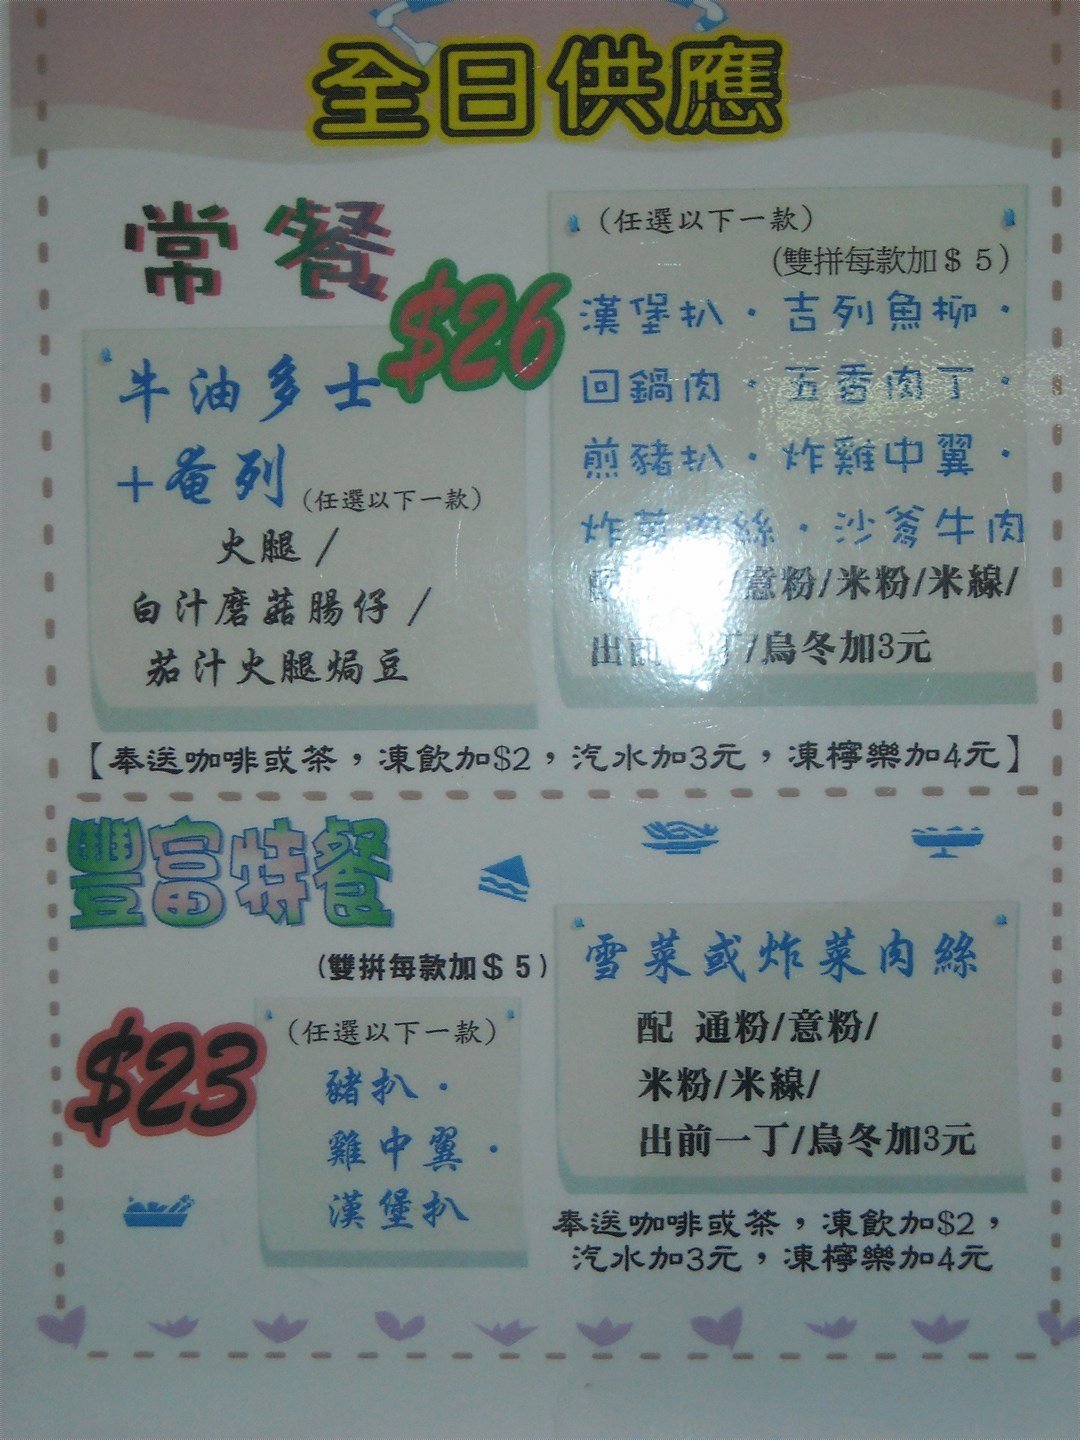 全日供應
常餐
$26
牛油多士
+奄列(任選以下一款)
火腿/
白汁磨菇腸仔/
茄汁火腿焗豆
(任選以下一款)
(雙拼每款加$5)
漢堡扒．吉列魚柳．
回鍋肉．五香肉丁．
煎豬扒．炸雞中翼．
炸菜肉絲．沙爹牛肉
意粉/米粉/米線/
出前 丁/烏冬加3元
【奉送咖啡或茶，凍飲加$2，汽水加3元，凍檸樂加4元】
豐富特餐
(雙拼每款加$5)
$23
(任選以下一款)
豬扒．
雞中翼．
漢堡扒
雪菜或炸菜肉絲
配 通粉/意粉/
米粉/米線/
出前一丁/烏冬加3元
奉送咖啡或茶，凍飲加$2，
汽水加3元，凍檸樂加4元